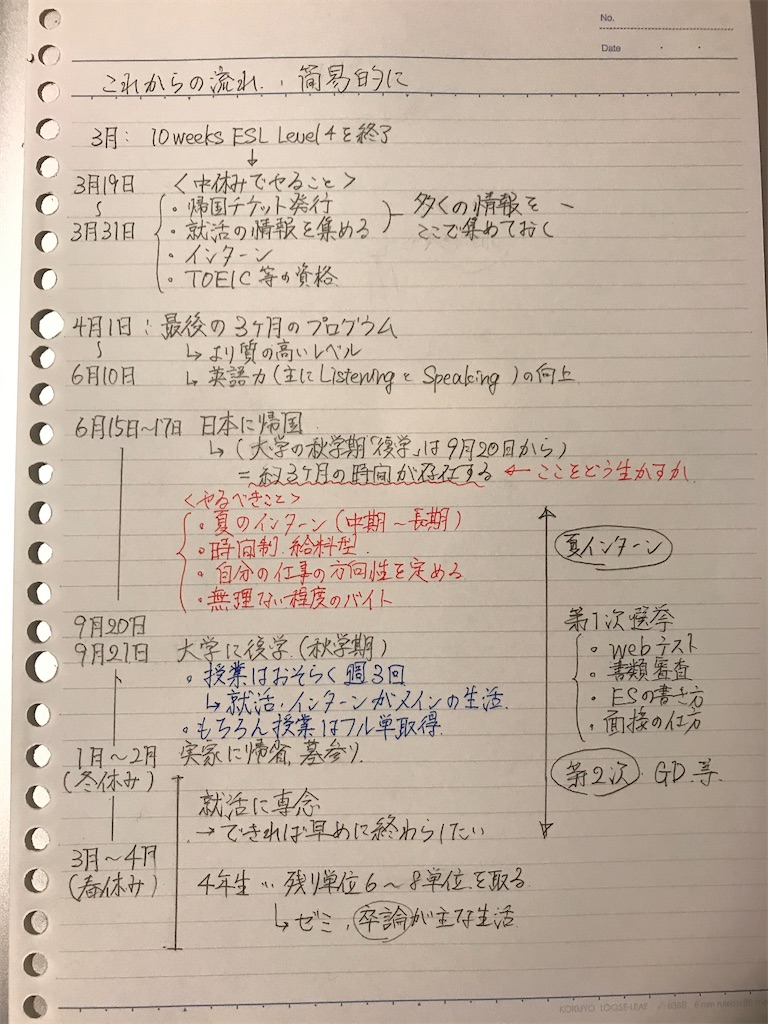 No.
Date
これからの流れ、簡易的に
3月: 10weeks ESL Level 4を終了
↓
3月19日 <中休みでやること>
〜 ・帰国チケット発行 多くの情報を
3月31日 ・就活の情報を集める ここで集めておく
・インターン
・TOEIC等の資格
4月1日:最後の3ヶ月のプログラム
〜 ↳より質の高いレベル
6月10日 ↳英語力(主にListeningとSpeaking)の向上
6月15日~17日 日本に帰国
↳(大学の秋学期「後学」は9月20日から)
=約3ヶ月の時間が存在する ←ここをどう生かすか
<やるべきこと>
・夏のインターン(中期〜長期)
・時間制.給料型 夏インターン
・自分の仕事の方向性を定める
・無理ない程度のバイト
9月20日 第1次選挙
9月21日 大学に後学(秋学期) ・webテスト
・授業はおそらく週3回 ・書類審査
↳就活・インターンがメインの生活 ・ESの書き方
・もちろん授業はフル単取得 ・面接の仕方
1月〜2月 実家に帰省,墓参り
(冬休み) 第2次 GD.等
就活に専念
→できれば早めに終わらしたい
3月〜4月
(春休み) 4年生… 残り単位6〜8単位を取る
↳ゼミ、卒論が主な生活
KOKUYO LOOSE-LEAF